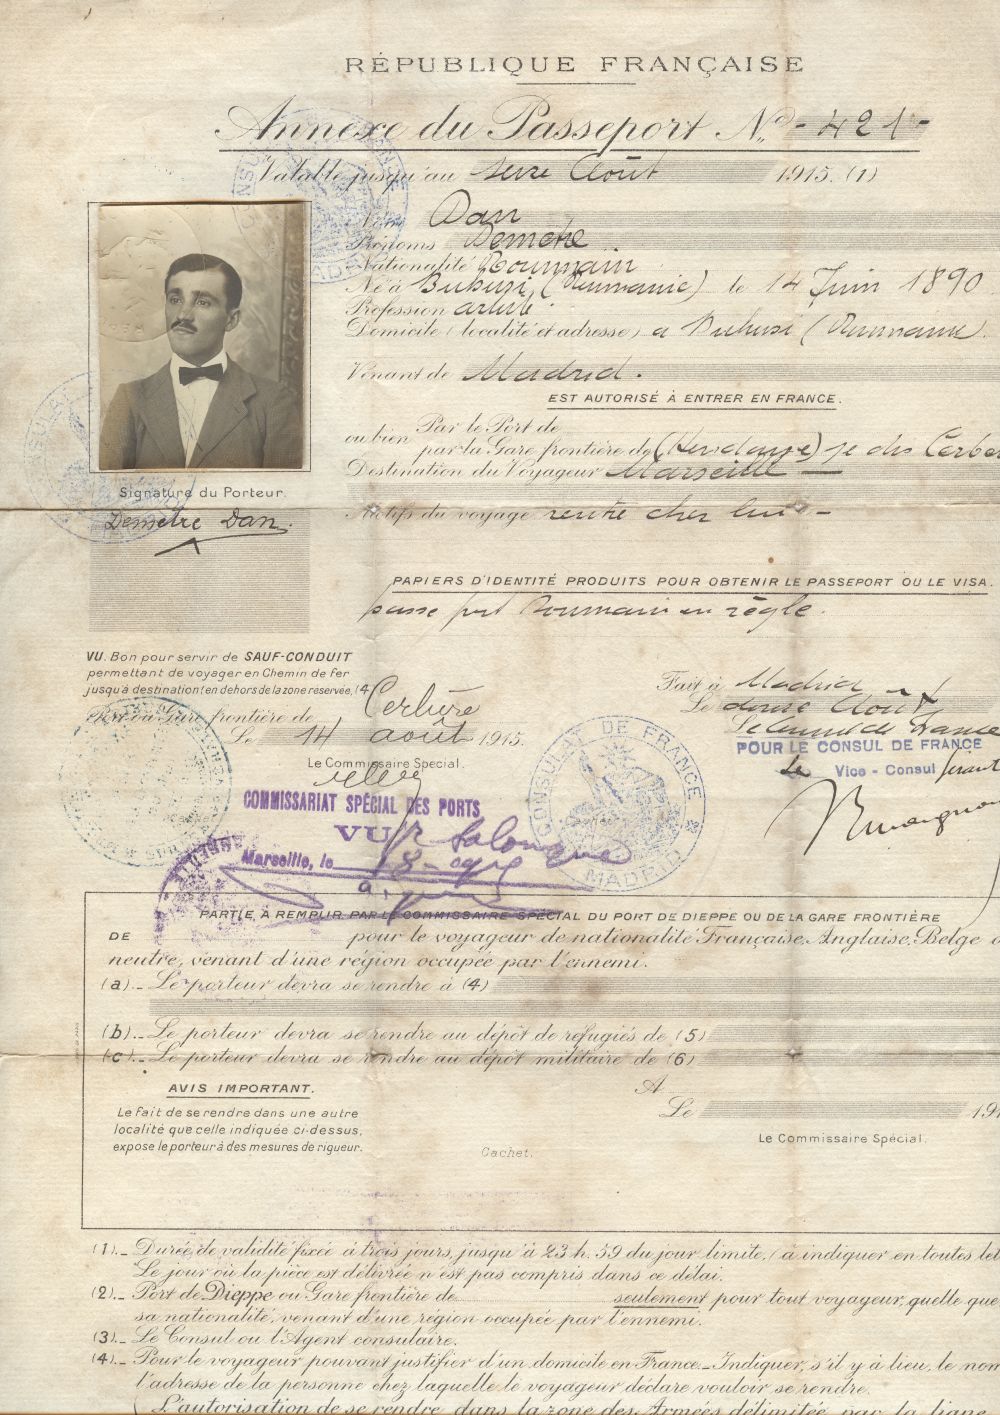 RÉPUBLIQUE FRANÇAISE
Annexe du Passeport No. - 421 -
Valable jusqu'au seize Août 1915. (1)
Nom Dan
Prénoms Demetre
Nationalité Roumain
Né à Buhusi (Roumanie) le 14 Juin 1890
Profession artiste
Domicile (localité et adresse) a Buhusi (Roumanie)
Venant de Madrid.
EST AUTORISÉ À ENTRER EN FRANCE.
Par le Port de
ou bien par la Gare frontière de (Hendaye) je dis Cerber
Destination du Voyageur Marseille
Signature du Porteur.
Demetre Dan.
Motifs du voyage rentre chez lui -
PAPIERS D'IDENTITÉ PRODUITS POUR OBTENIR LE PASSEPORT OU LE VISA.
passe port Roumain en règle.
VU. Bon pour servir de SAUF-CONDUIT
permettant de voyager en Chemin de fer
jusqu'à destination (en dehors de la zone réservée, (4
Port ou Gare frontière de Cerbère
Le 14 août 1915.
Le Commissaire Spécial.
Fait à Madrid
Le douze Août
Le Consul de France
POUR LE CONSUL DE FRANCE
Le Vice-Consul Gérant
CONSULAT DE FRANCE
MADRID
COMMISSARIAT SPÉCIAL DES PORTS
VU pr Salonique
Marseille, le 18
PARTIE À REMPLIR PAR LE COMMISSAIRE SPÉCIAL DU PORT DE DIEPPE OU DE LA GARE FRONTIÈRE
DE pour le voyageur de nationalité Française, Anglaise, Belge o
neutre, venant d'une région occupée par l'ennemi.
(a)._ Le porteur devra se rendre à (4)
(b)._ Le porteur devra se rendre au dépôt de réfugiés de (5)
(c)._ Le porteur devra se rendre au dépôt militaire de (6)
AVIS IMPORTANT.
Le fait de se rendre dans une autre
localité que celle indiquée ci-dessus,
expose le porteur à des mesures de rigueur.
A
Le 191
Le Commissaire Spécial.
Cachet.
(1)._ Durée de validité fixée à trois jours, jusqu'à 23 h. 59 du jour limite, (à indiquer en toutes let
Le jour où la pièce est délivrée n'est pas compris dans ce délai.
(2)._ Port de Dieppe ou Gare frontière de seulement pour tout voyageur, quelle que
sa nationalité, venant d'une région occupée par l'ennemi.
(3)._ Le Consul ou l'Agent consulaire.
(4)._ Pour le voyageur pouvant justifier d'un domicile en France._ Indiquer, s'il y a lieu, le nom
l'adresse de la personne chez laquelle le voyageur déclare vouloir se rendre.
(L'autorisation de se rendre dans la zone des Armées délimitée par la ligne